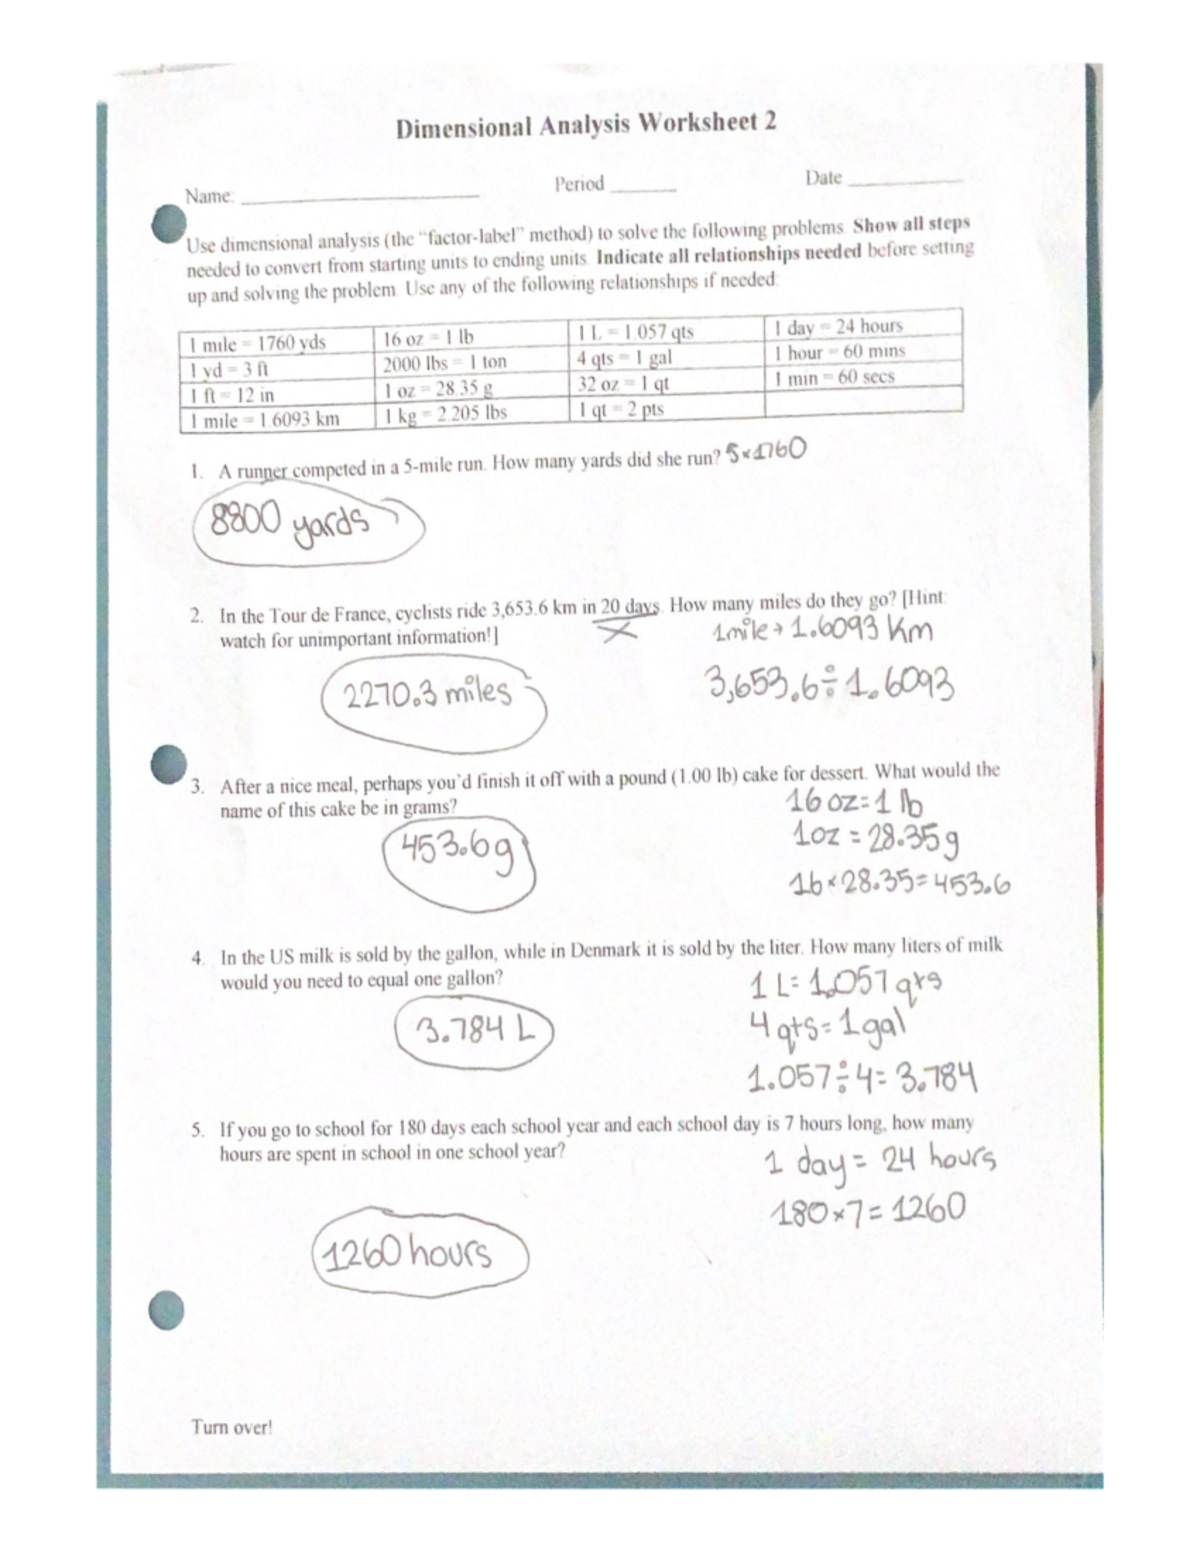 Dimensional Analysis Worksheet 2
Name: Period Date
Use dimensional analysis (the "factor-label" method) to solve the following problems. Show all steps
needed to convert from starting units to ending units. Indicate all relationships needed before setting
up and solving the problem. Use any of the following relationships if needed:
1 mile = 1760 yds 16 oz = 1 lb 1 L = 1.057 qts 1 day = 24 hours
1 yd = 3 ft 2000 lbs = 1 ton 4 qts = 1 gal 1 hour = 60 mins
1 ft = 12 in 1 oz = 28.35 g 32 oz = 1 qt 1 min = 60 secs
1 mile = 1.6093 km 1 kg = 2.205 lbs 1 qt = 2 pts
1. A runner competed in a 5-mile run. How many yards did she run? 5×1760
8800 yards
2. In the Tour de France, cyclists ride 3,653.6 km in 20 days. How many miles do they go? [Hint:
watch for unimportant information!] 1mile → 1.6093 Km
2270.3 miles 3,653.6÷1.6093
3. After a nice meal, perhaps you'd finish it off with a pound (1.00 lb) cake for dessert. What would the
name of this cake be in grams? 16 oz=1 lb
453.6g 1oz = 28.35g
16×28.35=453.6
4. In the US milk is sold by the gallon, while in Denmark it is sold by the liter. How many liters of milk
would you need to equal one gallon? 1 L= 1.057 qts
3.784 L 4 qts=1gal
1.057÷4= 3.784
5. If you go to school for 180 days each school year and each school day is 7 hours long, how many
hours are spent in school in one school year? 1 day= 24 hours
180×7=1260
1260 hours
Turn over!